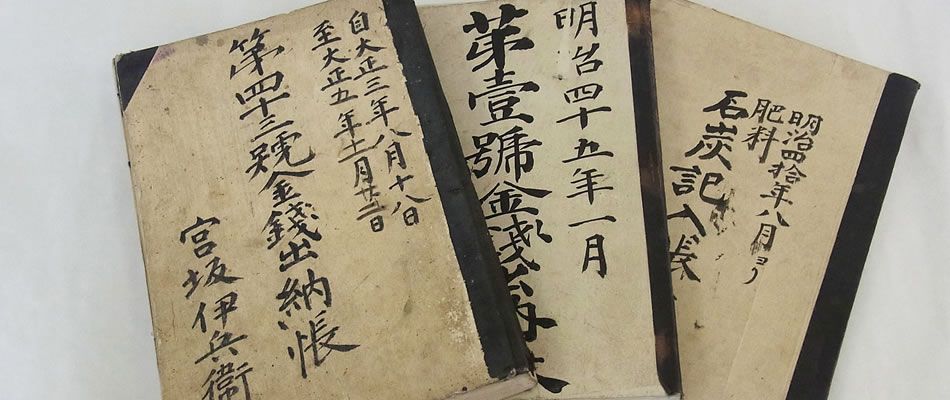 明治四拾年八月ヨリ
肥料
石炭記入帳
明治四十五年一月
第壹號金錢出納
自大正三年八月十八日
至大正五年十一月廿二日
第四十三號金錢出納帳
宮坂伊兵衛